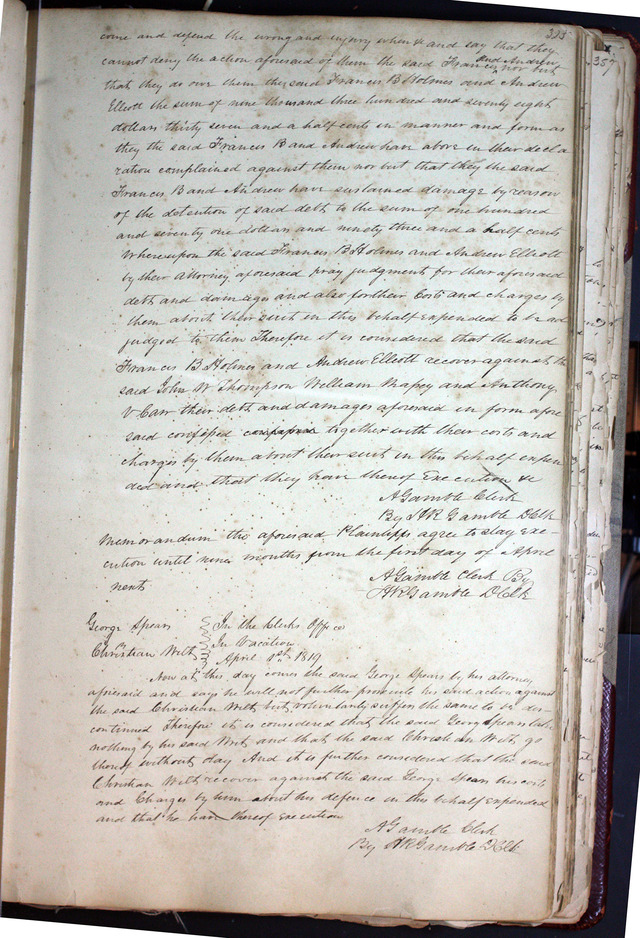 325
come and defend the wrong and injury when &c and say that they
cannot deny the action aforesaid of them the said Francis and Andrew nor but
that they do owe them the said Francis B Holmes and Andrew
Elliott the sum of nine thousand three hundred and seventy eight
dollars thirty seven and a half cents in manner and form as
they the said Francis B and Andrew have above in their decla
ration complained against them nor but that they the said
Francis B and Andrew have sustained damage by reason
of the detention of said debt to the sum of one hundred
and seventy one dollars and ninety three and a half cents
Whereupon the said Francis B Holmes and Andrew Elliott
by their attorney aforesaid pray judgment for their aforesaid
debt and damages and also for their Costs and charges by
them about their suit in this behalf expended to be ad
judged to them Therefore it is considered that the said
Francis B Holmes and Andrew Elliott recover against the
said John W Thompson William Massey and Anthony
V Carr their debt and damages aforesaid in form afore
said confessed together with their costs and
charges by them about their suit in this behalf expen
ded and that they have thereof Execution &c
A Gamble Clerk
By A R Gamble D Clk
Memorandum the aforesaid Plaintiffs agree to stay exe-
cution until nine months from the first day of April
next
A Gamble Clerk By
A R Gamble D Clk
George Spears
vs
Christian Wilt
In the Clerks Office
In Vacation
April 1st 1819
Now at this day comes the said George Spears by his attorney
aforesaid and says he will not further prosecute his said action against
the said Christian Wilt but voluntarily suffers the same to be dis-
continued Therefore it is considered that the said George Spears take
nothing by his said Writ and that the said Christian Wilt go
thereof without day And it is further considered that the said
Christian Wilt recover against the said George Spears his costs
and Charges by him about his defence in this behalf expended
and that he have thereof Execution
A Gamble Clerk
By A R Gamble D Clk
357